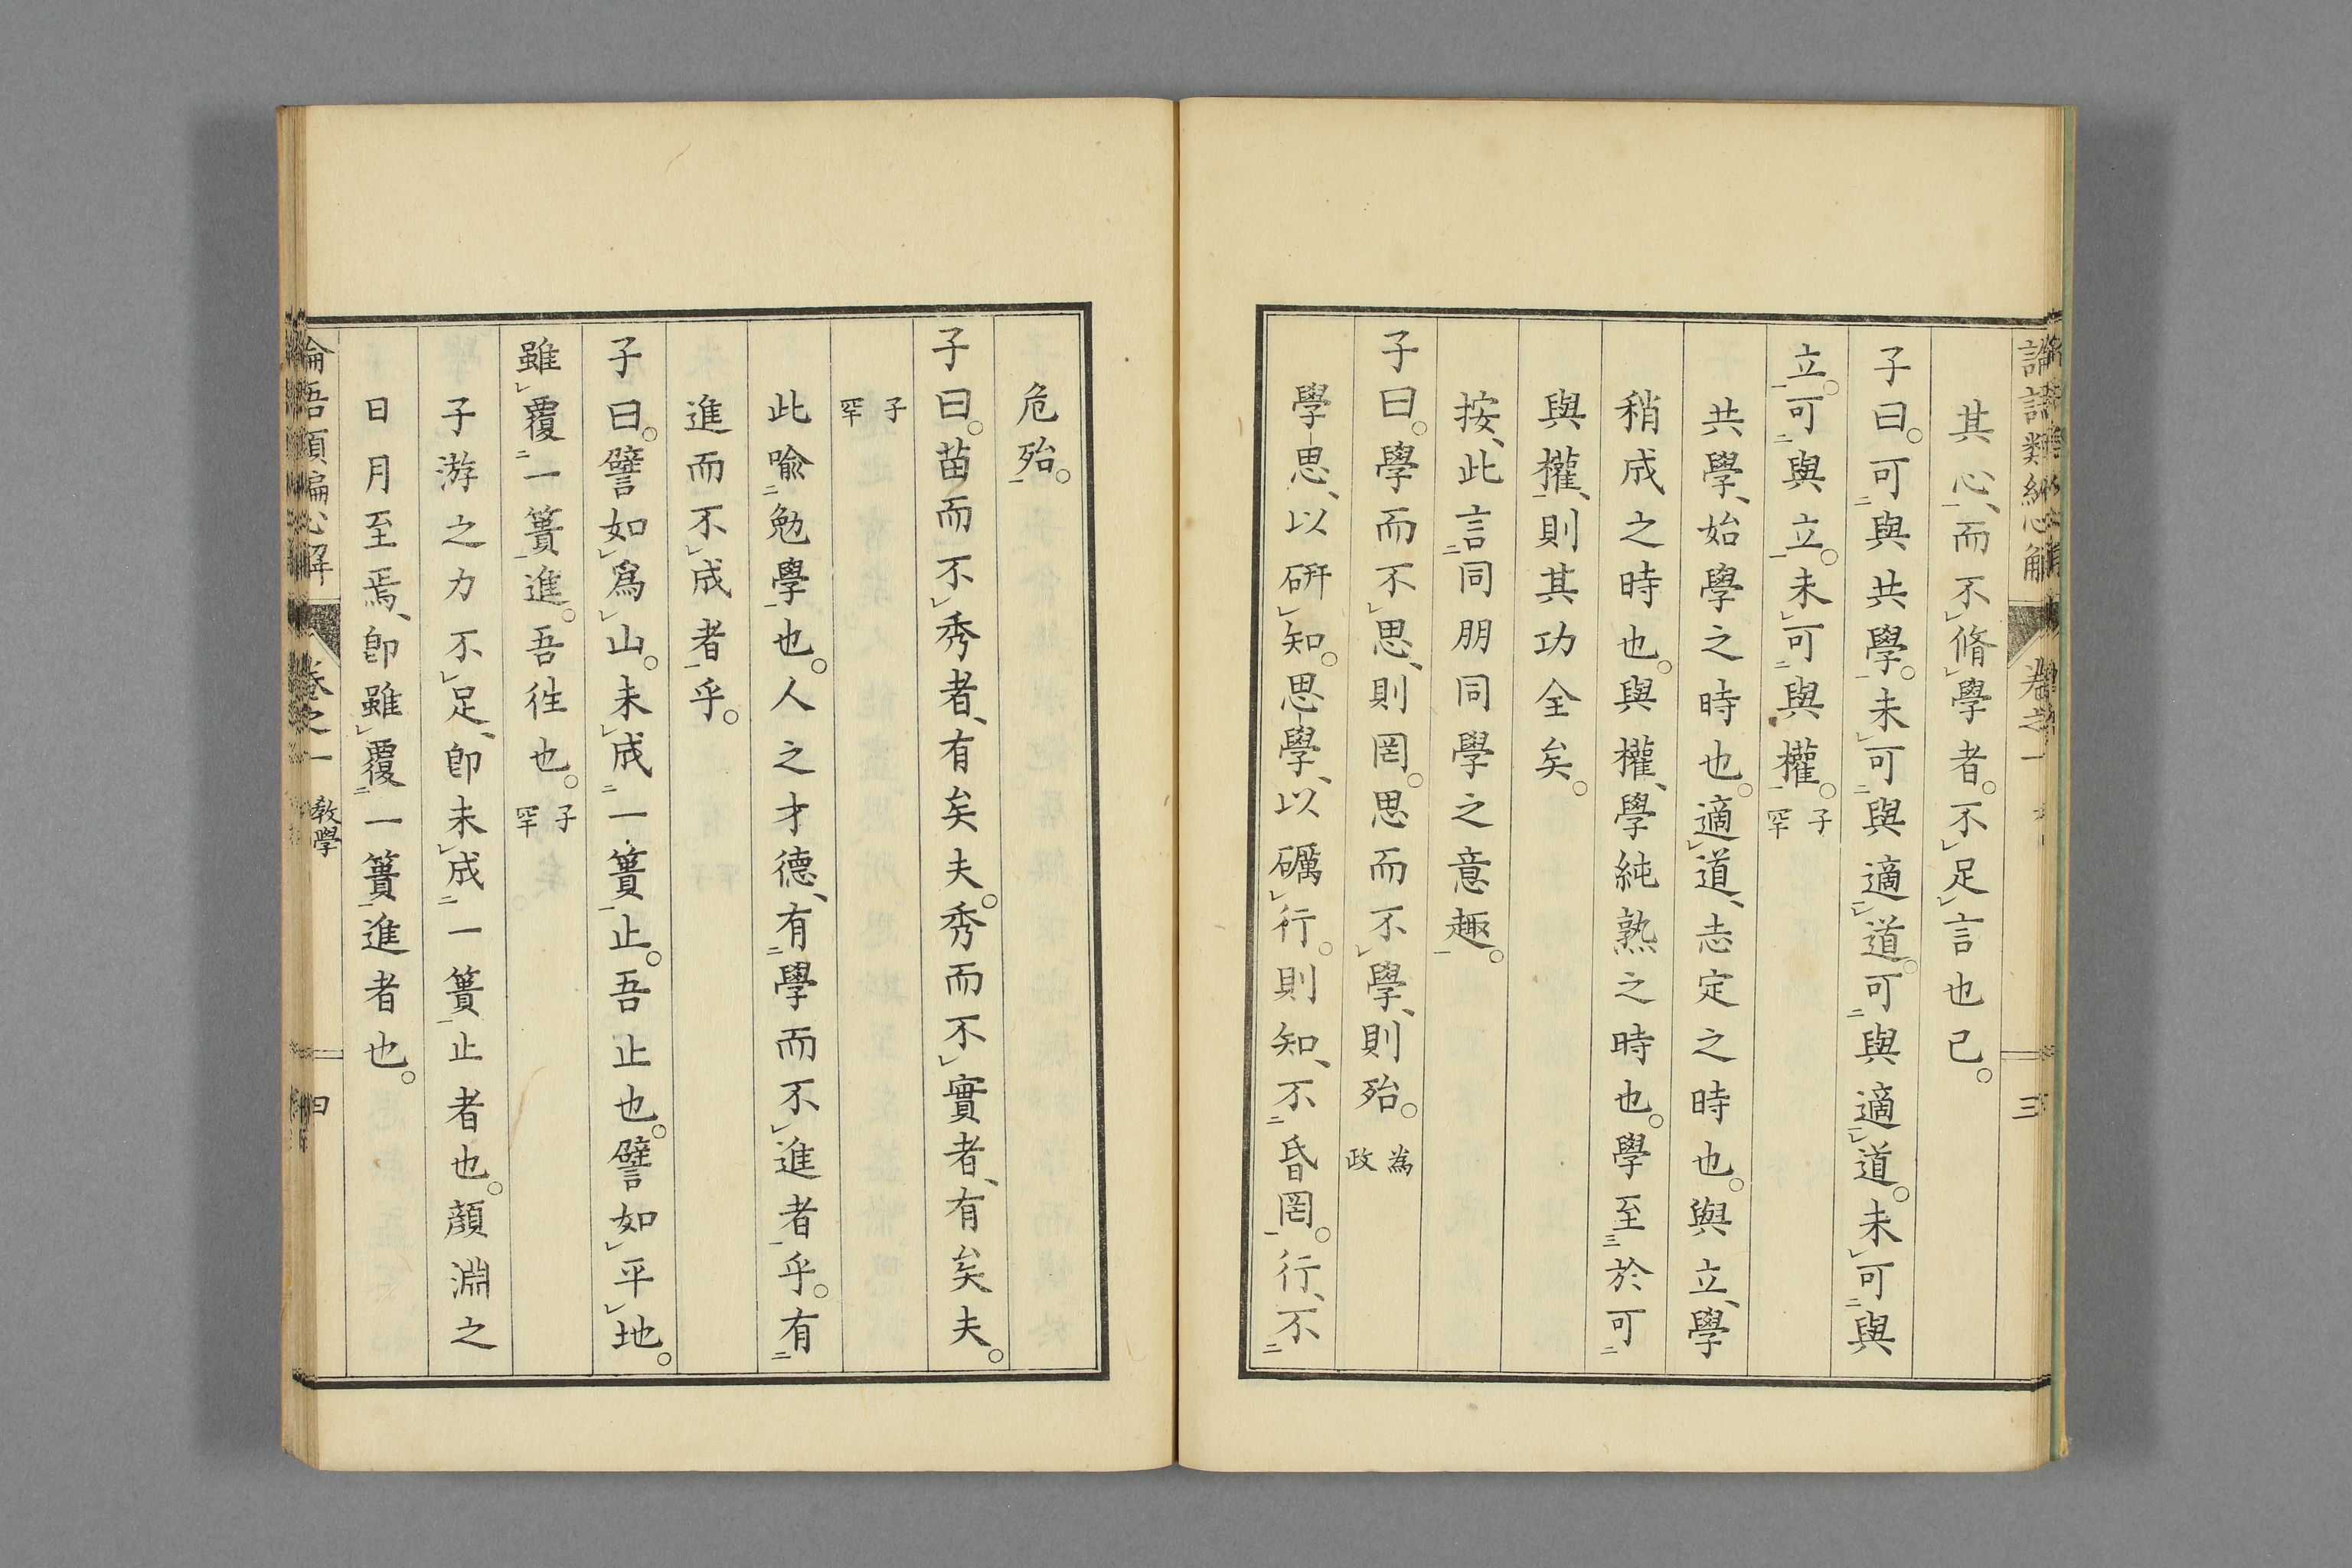 其心、而不脩學者。不足言也已。
子曰。可與共學。未可與適道。可與適道。未可與
立。可與立。未可與權。子罕
共學、始學之時也。適道、志定之時也。與立、學
稍成之時也。與權、學純熟之時也。學至於可
與權、則其功全矣。
按、此言同朋同學之意趣。
子曰。學而不思、則罔。思而不學、則殆。為政
學思、以硏知。思學、以礪行。則知、不昏罔。行、不
危殆。
子曰。苗而不秀者、有矣夫。秀而不實者、有矣夫。
子罕
此喩勉學也。人之才德、有學而不進者乎。有
進而不成者乎。
子曰。譬如爲山。未成一簣止。吾止也。譬如平地。
雖覆一簣進。吾往也。子罕
子游之力不足、卽未成一簣止者也。顏淵之
日月至焉、卽雖覆一簣進者也。
論語類編心解
卷之一
教學
四